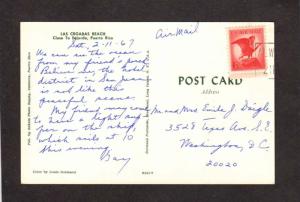 LAS CROABAS BEACH
Close To Fajardo, Puerto Rico
Sat. 2-11-67
We can see the ocean
from my friend's porch.
Believe me, the hotel
district in San Juan
is not like this
peaceful scene.
My friday may come
to have a light supper
on the ship,
which sails at 10
this evening.
Bay
Color by Louis Goldmann
Air Mail
POST CARD
Address
Mr. and Mrs. Emile J. Daigle
3528 Texas Ave. S.E.
Washington, D.C.
20020